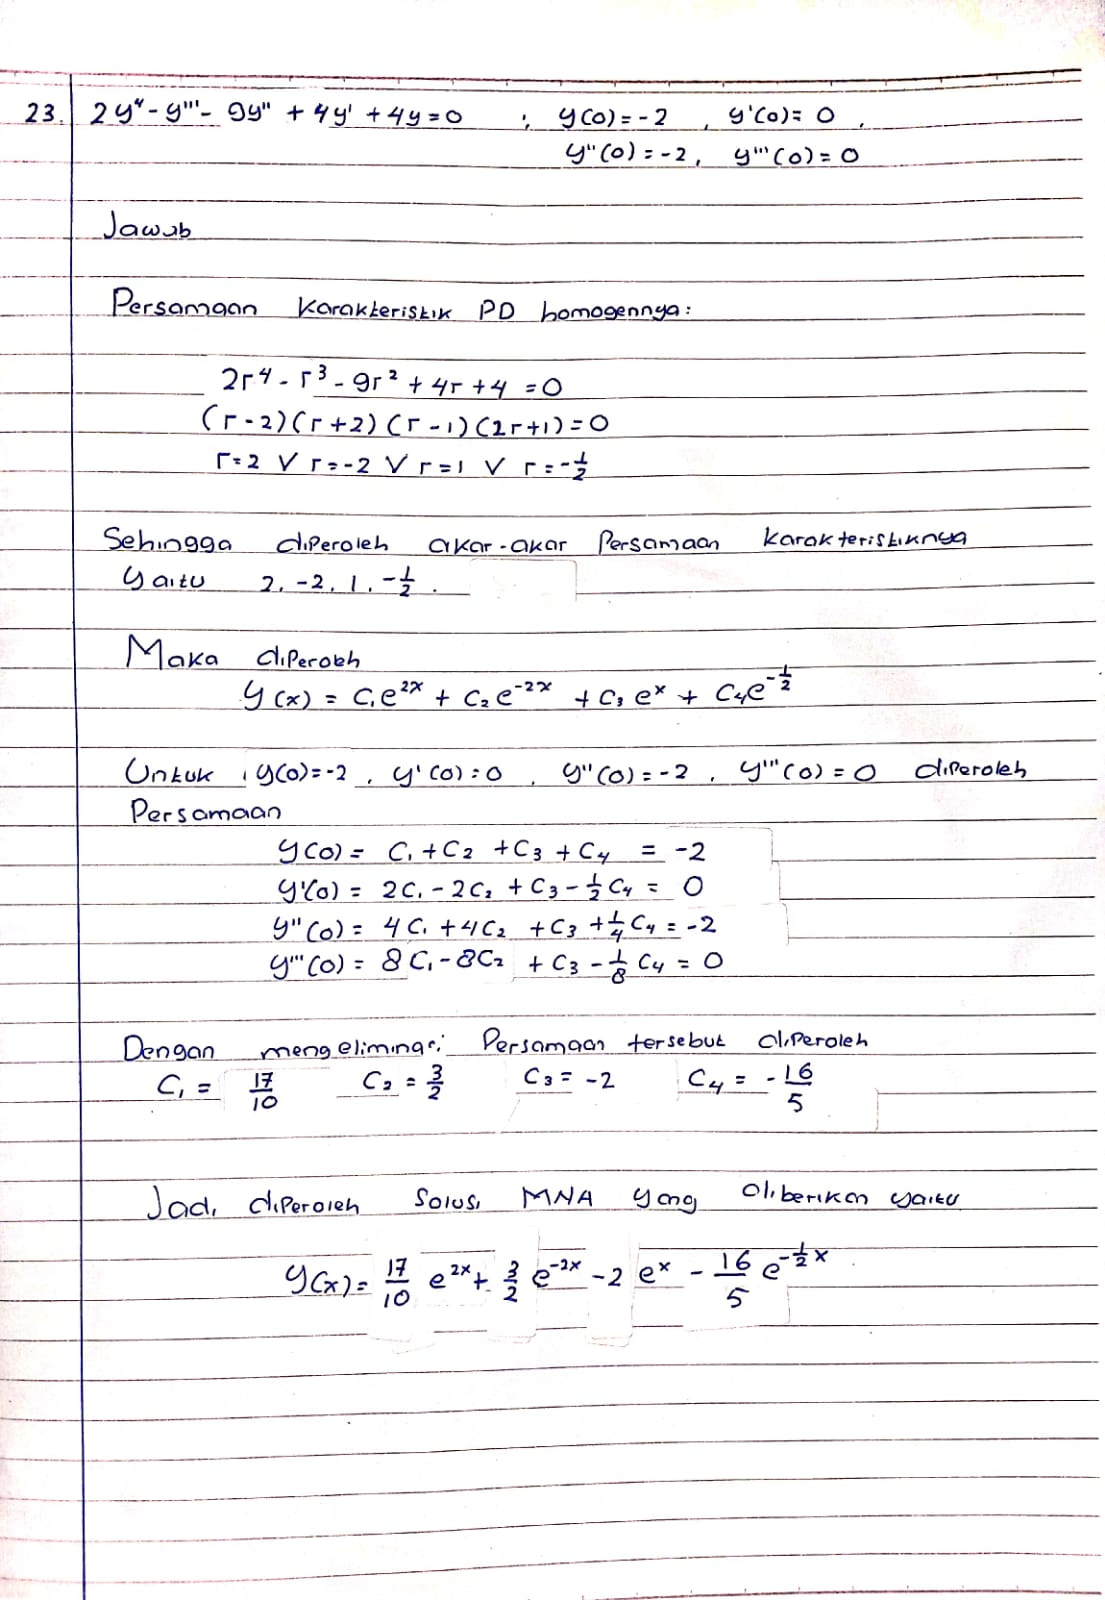 23. 2y⁴ - y''' - 9y'' + 4y' + 4y = 0 ; y(0) = -2 , y'(0) = 0 ,
y''(0) = -2 , y'''(0) = 0
Jawab
Persamaan Karakteristik PD homogennya:
2r⁴ - r³ - 9r² + 4r + 4 = 0
(r - 2)(r + 2)(r - 1)(2r + 1) = 0
r = 2 V r = -2 V r = 1 V r = -1/2
Sehingga diperoleh akar-akar Persamaan karakteristiknya
yaitu 2, -2, 1, -1/2 .
Maka diperoleh
y(x) = C₁e²ˣ + C₂e⁻²ˣ + C₃eˣ + C₄e^(-1/2)
Untuk y(0) = -2 , y'(0) = 0 , y''(0) = -2 , y'''(0) = 0 diperoleh
Persamaan
y(0) = C₁ + C₂ + C₃ + C₄ = -2
y'(0) = 2C₁ - 2C₂ + C₃ - 1/2 C₄ = 0
y''(0) = 4C₁ + 4C₂ + C₃ + 1/4 C₄ = -2
y'''(0) = 8C₁ - 8C₂ + C₃ - 1/8 C₄ = 0
Dengan mengeliminasi Persamaan tersebut diperoleh
C₁ = 17/10 C₂ = 3/2 C₃ = -2 C₄ = -16/5
Jadi diperoleh Solusi MNA yang diberikan yaitu
y(x) = 17/10 e²ˣ + 3/2 e⁻²ˣ - 2 eˣ - 16/5 e^(-1/2 x)